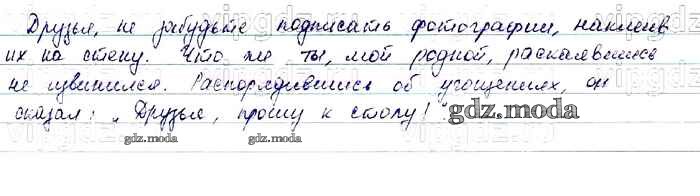 Друзья, не забудьте подписать фотографии, наклеив
их на стену. Что же ты, мой родной, раскаявшись
не извинился. Распорядившись об угощениях, он
сказал: „Друзья, прошу к столу!"
gdz.moda
gdz.moda
gdz.moda